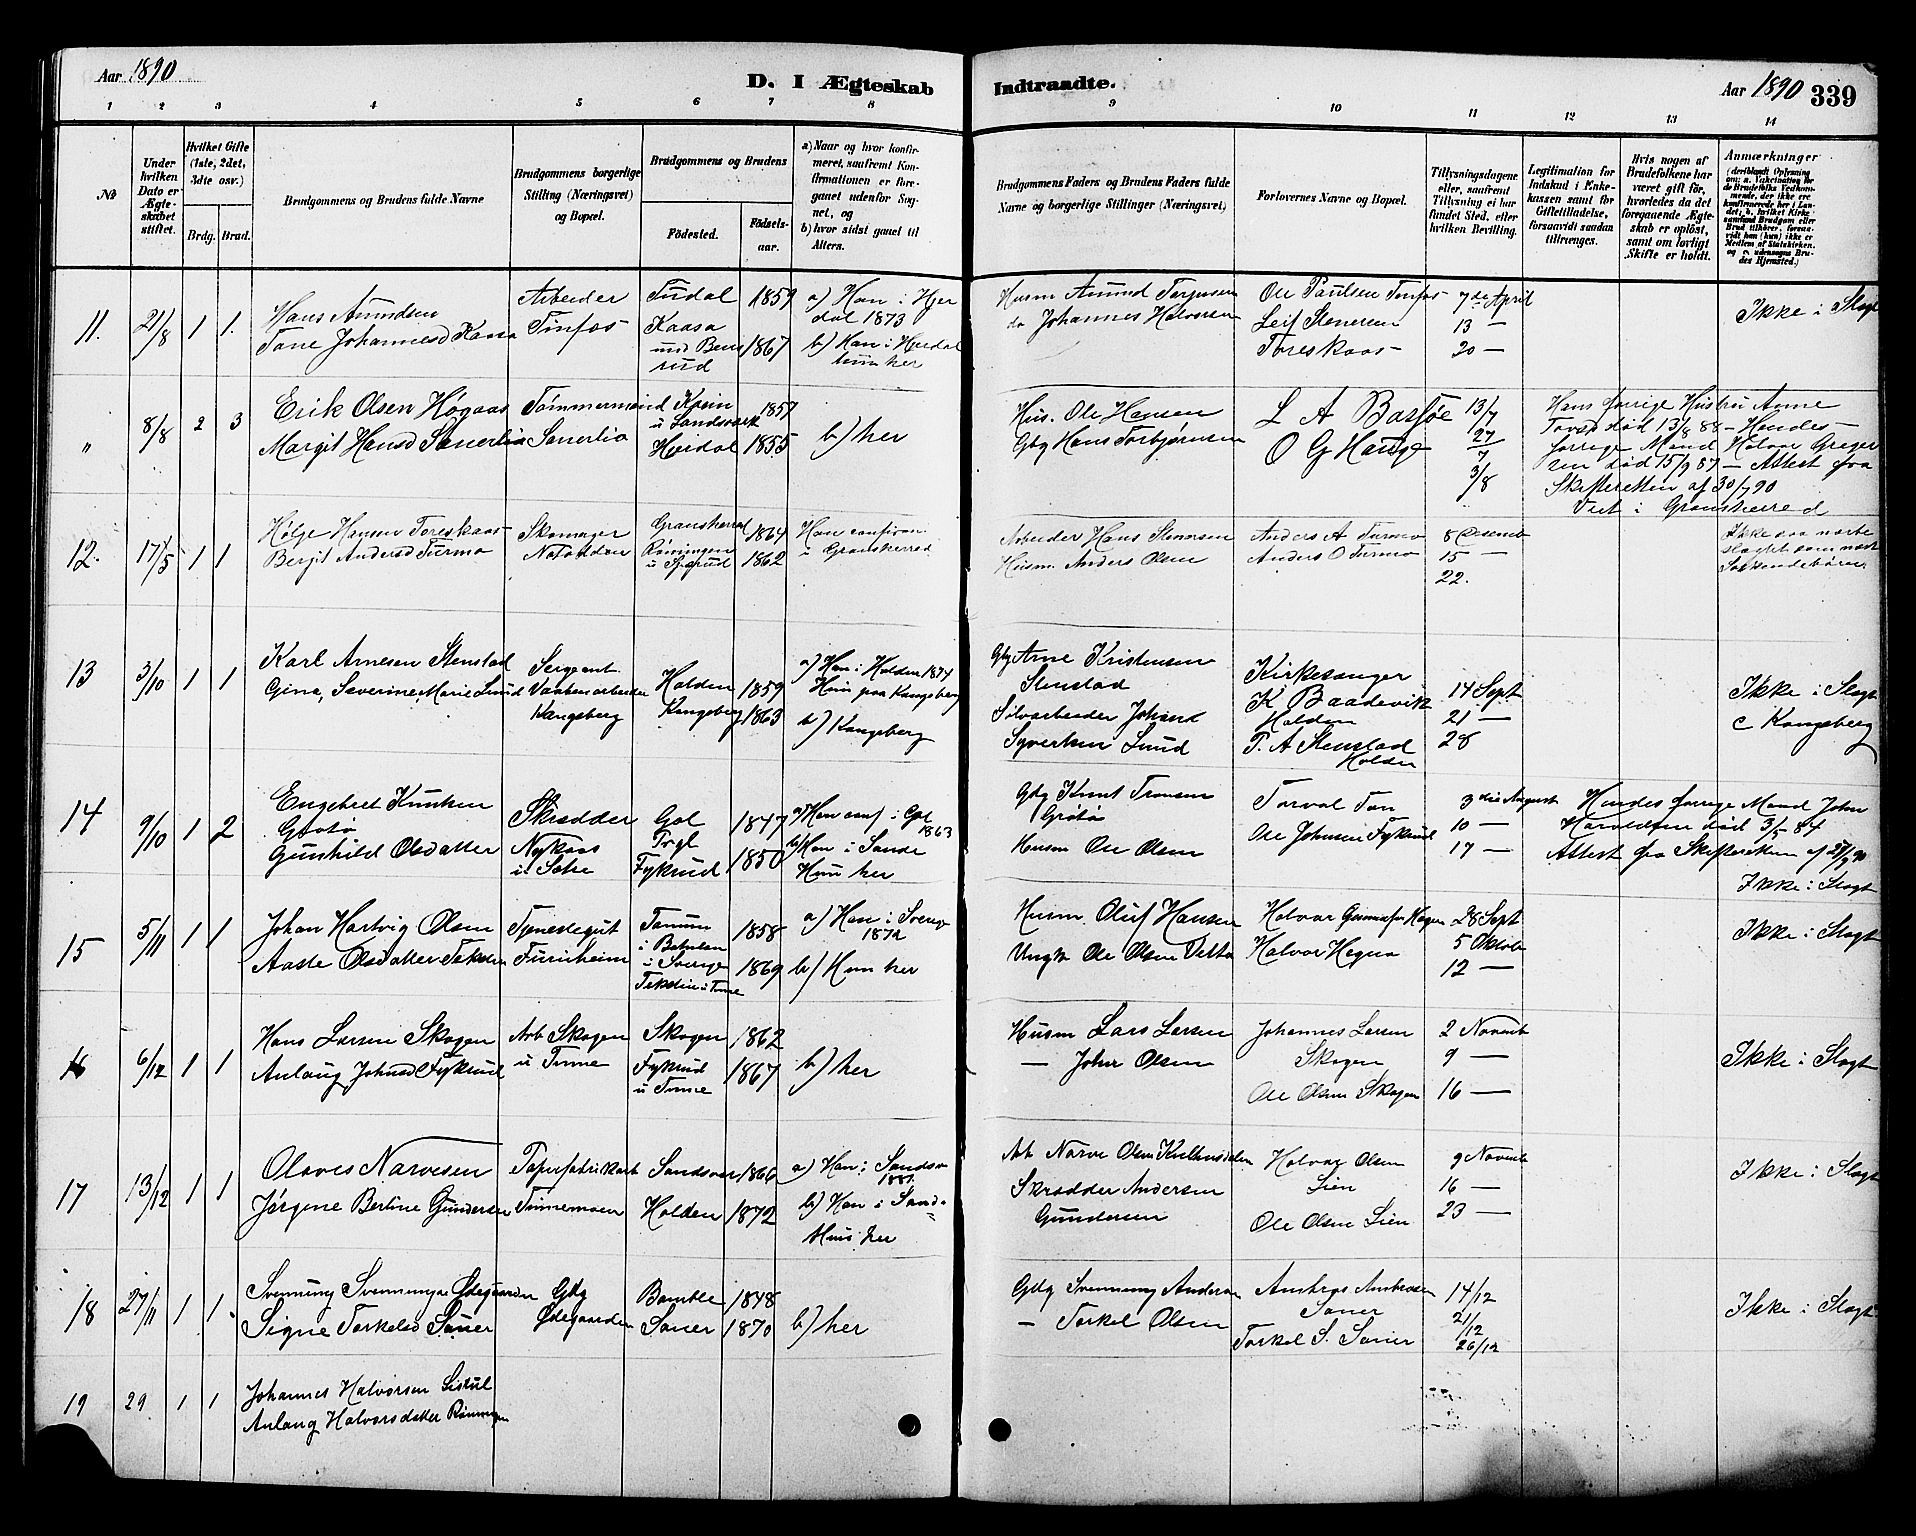 Aar 1890
D. I Ægteskab
Indtraadte.
Aar 1890 339
1 2 3 4 5 6 7 8 9 10 11 12 13 14
№
Under hvilken Dato er Ægteskabet stiftet.
Hvilket Gifte (1ste, 2det, 3die osv.)
Brdg. Brud.
Brudgommens og Brudens fulde Navne
Brudgommens borgerlige Stilling (Næringsvei) og Bopæl.
Brudgommens og Brudens
Fødested.
Fødsels-aar.
a) Naar og hvor konfirmeret, saafremt Konfirmationen er foregaaet udenfor Sognet, og
b) hvor sidst gaaet til Alters.
Brudgommens Faders og Brudens Faders fulde Navne og borgerlige Stillinger (Næringsvei)
Forlovernes Navne og Bopæl.
Tillysningsdagene eller, saafremt Tillysning ei har fundet Sted, efter hvilken Bevilling.
Legitimation for Indskud i Enkekassen samt for Giftetilladelse, forsaavidt saadan tiltrænges.
Hvis nogen af Brudefolkene har været gift før, hvorledes da det foregaaende Ægteskab er opløst, samt om lovligt Skifte er holdt.
Anmærkninger
11. 21/8 1 1.
Hans Amundsen
Tone Johannesd Kaasa
Arbeider
Tinfos
Tudal 1859
Kaasa
und Bens
rud 1867
a) Han i Hjer
dal 1873
b) Han i Hjerdal
hun her
Husm Amund Torjusen
do Johannes Halvorsen
Ole Paulsen Tinfos
Leif Stenersen
Toreskaas
7de April
13 —
20 —
Ikke i Slægt
" 8/8 2 3
Erik Olsen Høgaas
Margit Hansd Sanerlia
Tømmermand
Sanerlia
1857
Heidal 1855
b) her
Hus. Ole Hansen
Gbg Hans Torbjørnsen
L A Bassøe
O G Hauge
13/7
27/7
3/8
Hans forrige Hustru Anne
død 13/8 88 - Hendes
forrige Mand Halvor Greger
sen død 15/9 87 - Attest fra
Skifteretten af 30/7 90
Viet i Gransherred
12. 17/5 1 1
Hølje Hansen Toreskaas
Bergit Andersd Turmo
Skomager
Notodden
Gransherred 1864
Røningen 1862
Han confirm
i Gransherred
Arbeider Hans Stenersen
Husm. Anders Olsen
Anders A Turmo
Anders O Turmo
8 Decemb
15 —
22.
Ikke saa nærbe
slægtet som næst
Søskendebørn
13 3/10 1 1
Karl Arnesen Stenstad
Gina, Severine, Marie Lund
Sergeant
Vaabenarbeider
Kongsberg
Holden 1859
Kongsberg 1863
a) Han i Holden 1874
Hun paa Kongsberg
b) Kongsberg
Gbg Arne Kristensen
Stenstad
Sølvarbeider Johan
Syvertsen Lund
Kirkesanger
K Baadevik
Holden
P. A Stenstad
Holden
14 Sept
21 —
28
Ikke i Slægt
c Kongsberg
14 9/10 1 2
Engebret Knutsen
Grøtø
Gunhild Olsdatter
Skrædder
Nykaas
Gol 1847
Fykrud 1850
a) Han conf i Gol
1863
b) Han i Sande
Hun her
Gbg Knut Tronsen
Grøtø
Husm Ole Olsen
Torval Ton
Ole Johnsen Fykrud
3die August
10 —
17 —
Hendes forrige Mand John
Haroldsen død 3/5 84
Attest fra Skifteretten af 27/9 90
Ikke i Slægt
15 5/11 1 1
Johan Hartvig Olsen
Aaste Olsdatter Tekslien
Tjenestegut
Furuheim
Tanum 1858
i Bohuslen
i Sverige 1869
Tekslien i Tinne
a) Han i Sverige
1872
b) Hun her
Husm Oluf Hansen
Ungk Ole Olsen
Halvor Gunnulfsen Hogen
Halvor Hegna
28 Sept
5 Oktob
12 —
Ikke i Slægt
16 6/12 1 1
Hans Larsen Skogen
Anlaug Johnsd Fykrud
Arb Skogen
u Tinne
Skogen 1862
Fykrud 1867
u Tinne
b) her
Husm Lars Larsen
— John Olsen
Johannes Larsen
Skogen
Ole Olsen Skogen
2 Novemb
9 —
16 —
Ikke i Slægt
17 13/12 1 1
Olaves Narvesen
Jørgine Berline Gundersen
Papirfabrikarb
Tinnemoen
Sandsvær 1866
Holden 1872
a) Han i Sandsv
1881
b) Han i Sands
Hun her
Arb Narve Olsen
Skrædder Andersen
Gundersen
Halvor Olsen
Lien
Ole Olsen Lien
9 Novemb
16 —
23 —
Ikke i Slægt
18 27/11 1 1
Svennung Svennungsen Ødegaarden
Signe Torkelsd Saner
Gbg
Ødegaarden
Bamble 1848
Saner 1870
b) her
Gbg Svennung Andersen
— Torkel Olsen
Ambros Ambrosen
Saner
Torkel S. Saner
14/12
21/12
26/12
Ikke i Slægt
19 29 1 1
Johannes Halvorsen Listul
Anlaug Halvorsdatter Rønningen